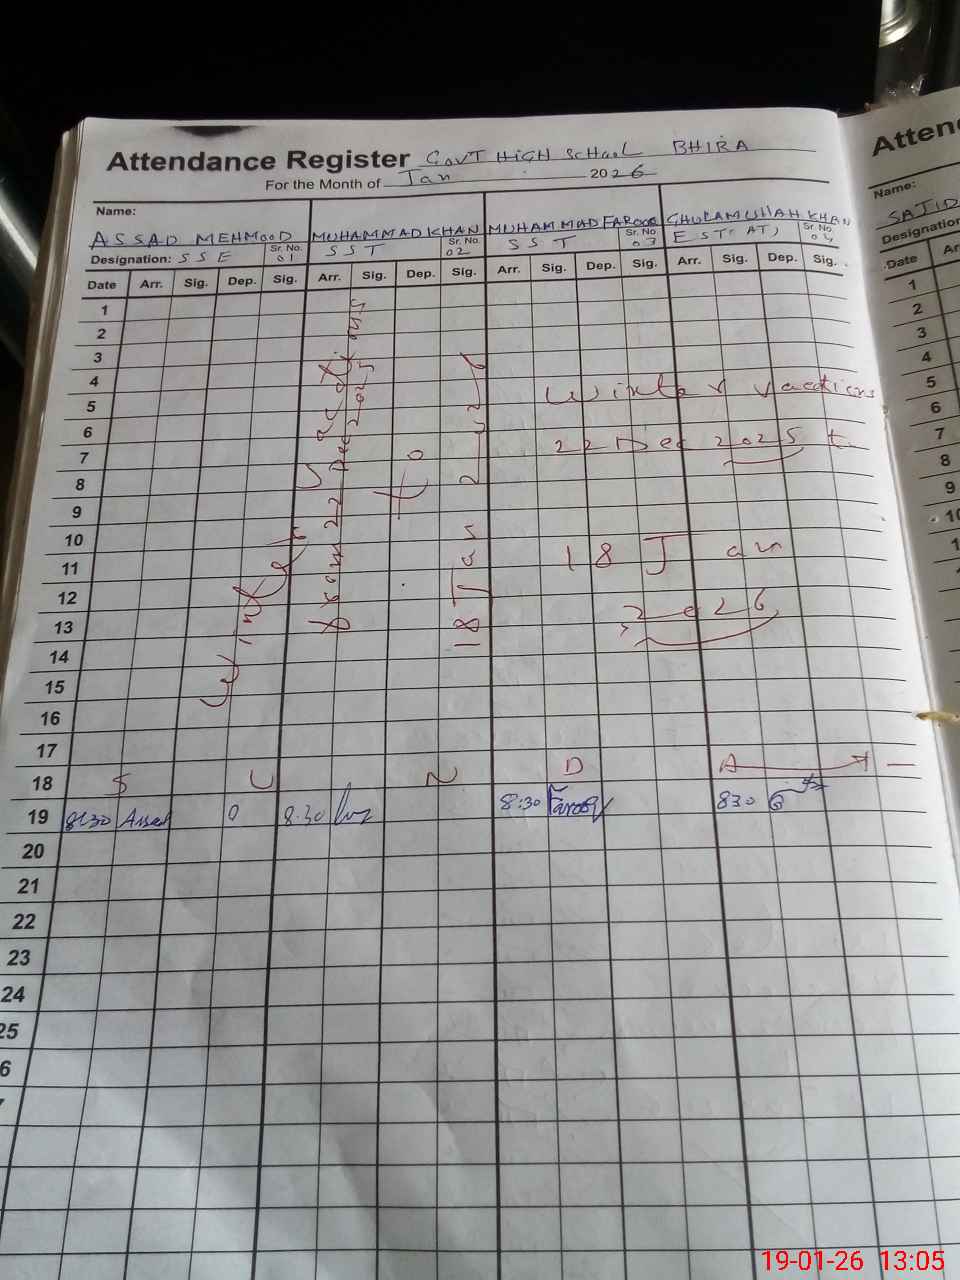 Attendance Register GOVT HIGH SCHOOL BHIRA
For the Month of Jan 2026
Name:
ASSAD MEHMOOD MUHAMMAD KHAN MUHAMMAD FAROOQ GHULAM ULLAH KHAN
Designation: SSE Sr. No. 01 SST Sr. No. 02 SST Sr. No. 03 EST(AT) Sr. No. 04
Date Arr. Sig. Dep. Sig. Arr. Sig. Dep. Sig. Arr. Sig. Dep. Sig. Arr. Sig. Dep. Sig.
1
2
3
4
5
6
7
8
9
10
11
12
13
14
15
16
17
18 S U N D A Y
19 8:30 Assad 0 8.30 8:30 Farooq 830
20
21
22
23
24
25
6
7
Winter Vacations
from 22 Dec 2025
to
18 Jan 2026
Winter Vacations
22 Dec 2025 t
18 Jan
2026
Atten
Name:
SAJID
Designation
Date Ar
1
2
3
4
5
6
7
8
9
10
19-01-26 13:05